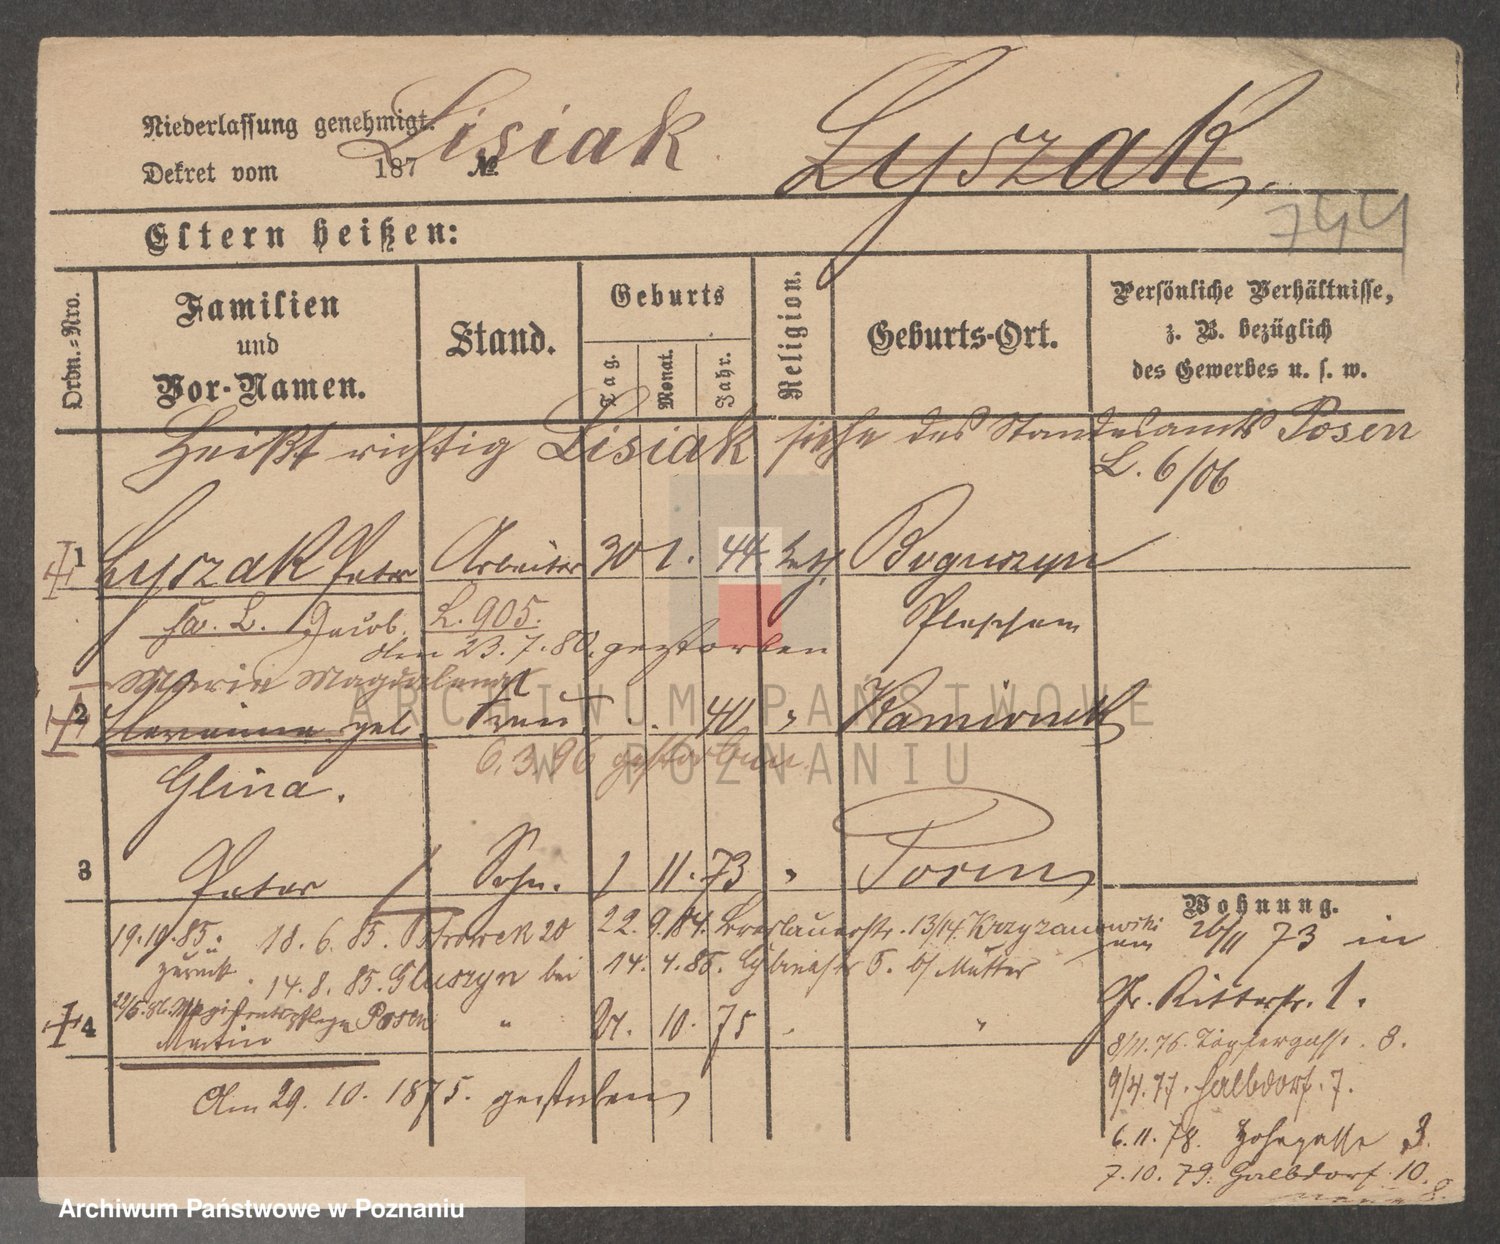 Niederlassung genehmigt. Lisiak Lyszak.
Dekret vom 187 №
744
Eltern heißen:
Ordn.-Nro.
Familien
und
Vor-Namen.
Stand.
Geburts
Tag.
Monat.
Jahr.
Religion.
Geburts-Ort.
Persönliche Verhältnisse,
z. B. bezüglich
des Gewerbes u. s. w.
Heißt richtig Lisiak siehe des Standesamts Posen
L. 6/06
1 Lyszak Peter Arbeiter 30 1. 44. kath. Boguszyn
L. Jacob. L. 905. Pleschen
den 23.7.80. gestorben
Maria Magdalena
2 geb. Frau . . 40 " Kamionek
6.3.96 gestorben.
Glina.
3 Peter Sohn. 1 11. 73 " Posen
Wohnung.
19.10.85. 18. 6. 85. 22. 9. 84. Breslauerstr. 13/14. Krzyzanowski
26/11 73 in
zurück. 14. 8. 85. Gluszyn bei 14. 4. 85. 5. b/ Mutter
Gr. Ritterstr. 1.
Posen
4 Martin " 27. 10. 75 " "
8/11. 76. Töpfergasse. 3.
Am 29. 10. 1875. gestorben
9/4. 77. Halbdorf. 7.
6. 11. 78. 3.
7. 10. 79. Halbdorf 10.
ARCHIWUM PAŃSTWOWE
W POZNANIU
Archiwum Państwowe w Poznaniu